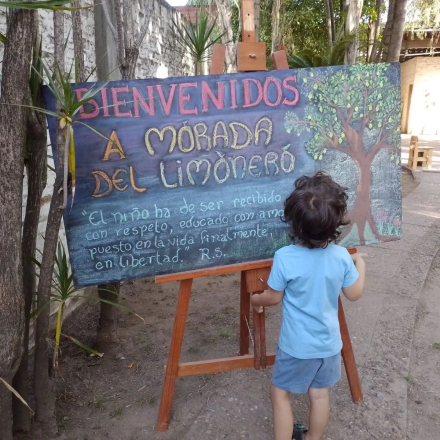 BIENVENIDOS
A MORADA
DEL LIMONERO
"El niño ha de ser recibido
con respeto, educado con amo
puesto en la vida finalmente,
en libertad." R.S.